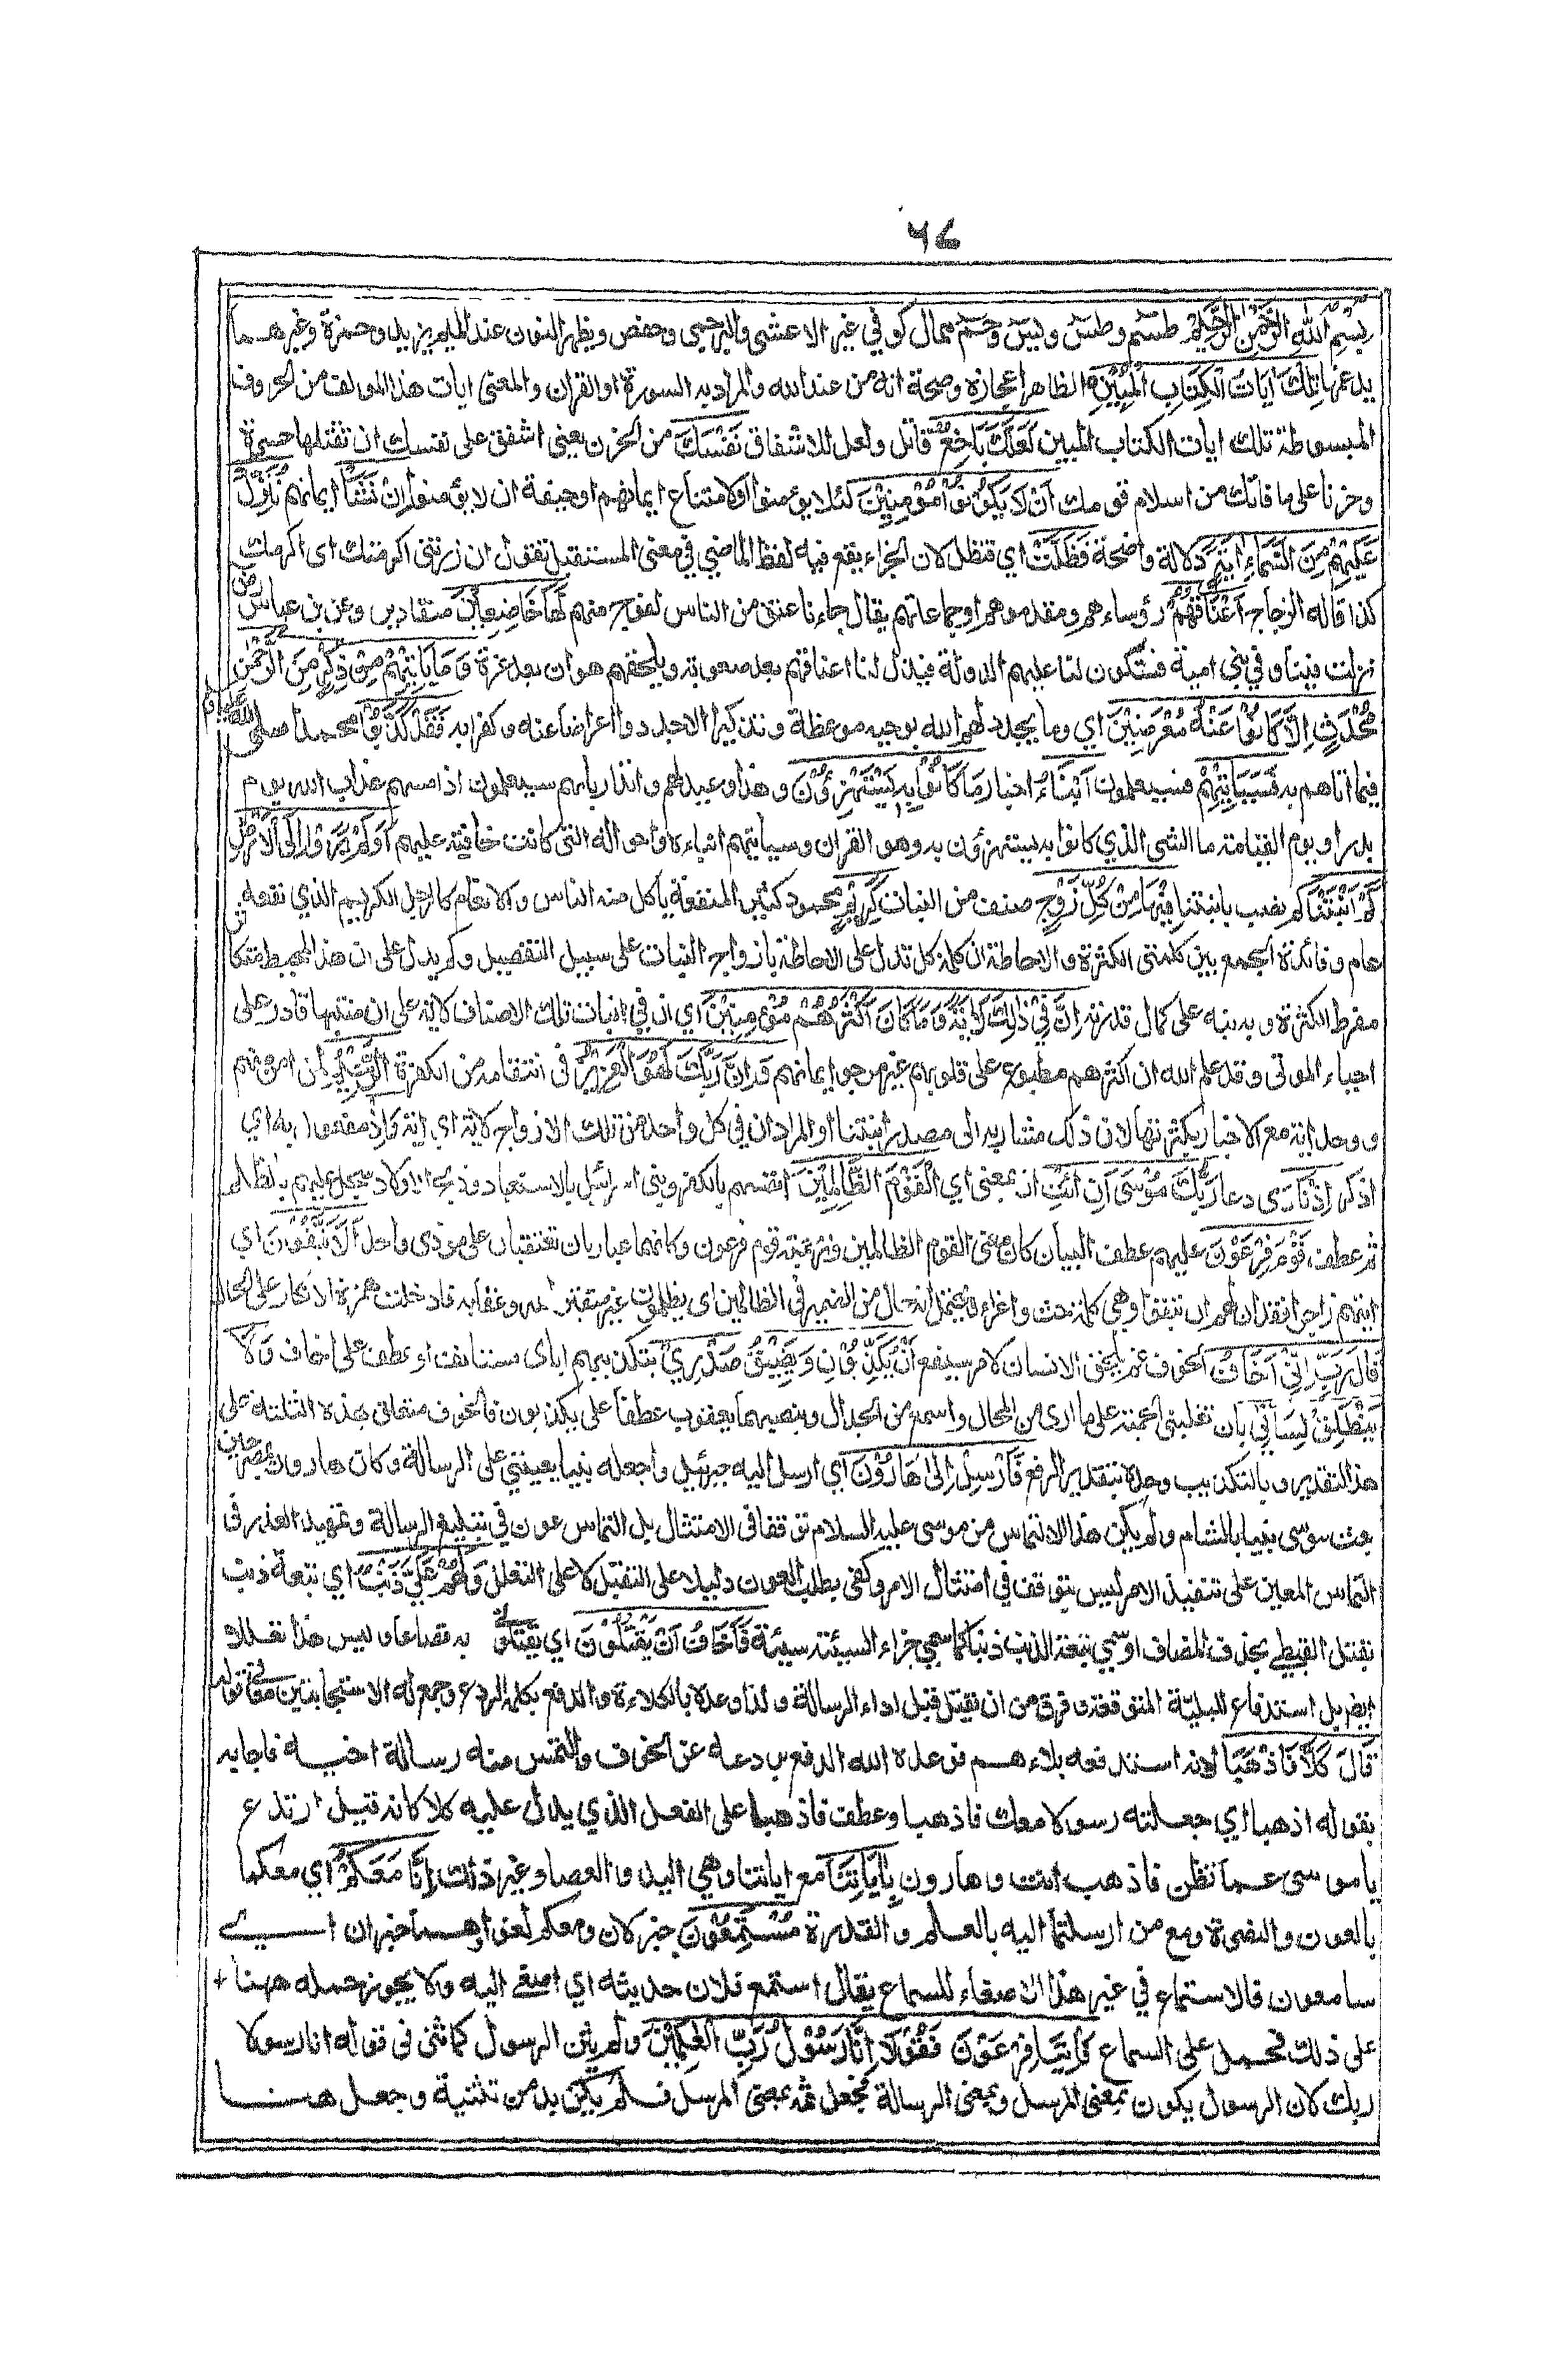 ٦٧
بِسْمِ اللهِ الرَّحْمٰنِ الرَّحِيْمِ طسم وطس ويس وحم ممال كوفي غير الاعشى والبرجمي وحفص ويظهر النون عند الميم يزيد وحمزة وغيرهما
يدغمها تِلْكَ اٰيَاتُ الْكِتَابِ الْمُبِيْنِ الظاهر اعجازه وصحة انه من عند الله والمراد به السورة او القران والمعنى ايات هذا المولف من الحروف
المبسوطة تلك ايات الكتاب المبين لَعَلَّكَ بَاخِعٌ قاتل ولعل للاشفاق نَفْسَكَ من الحزن يعني اشفق على نفسك ان تقتلها حسرة
وحزنا على ما فاتك من اسلام قومك اَنْ لَا يَكُوْنُوْا مُؤْمِنِيْنَ لئلا يؤمنوا او لامتناع ايمانهم او خيفة ان لا يؤمنوا اِنْ نَشَأْ ايمانهم نُنَزِّلْ
عَلَيْهِمْ مِنَ السَّمَاءِ اٰيَةً دلالة واضحة فَظَلَّتْ اي فتظل لان الجزاء يقع فيه لفظ الماضي في معنى المستقبل تقول ان زرتني اكرمتك اى اكرمك
كذا قاله الزجاج اَعْنَاقُهُمْ رؤساءهم ومقدموهم او جماعاتهم يقال جاءنا عنق من الناس لفوج منهم لَهَا خَاضِعِيْنَ منقادين وعن بن عباس رض
نزلت فينا وفي بني امية فستكون لنا عليهم الدولة فيذل لنا اعناقهم بعد صعوبة ويلحقهم هوان بعد عزة وَمَا يَأْتِيْهِمْ مِنْ ذِكْرٍ مِنَ الرَّحْمٰنِ
مُحْدَثٍ اِلَّا كَانُوْا عَنْهُ مُعْرِضِيْنَ اي وما يجدد لهم الله بوحيه موعظة وتذكيرا الا جددوا اعراضا عنه وكفرا به فَقَدْ كَذَّبُوْا محمدا صلى الله عليه وسلم
فيما اتاهم به فَسَيَأْتِيْهِمْ فسيعلمون اَنْبَاءُ اخبار مَا كَانُوْا بِهٖ يَسْتَهْزِؤُنَ وهذا وعيد لهم وانذار بانهم سيعلمون اذا مسهم عذاب الله يوم
بدر او يوم القيامة ما الشى الذي كانوا به يستهزؤن به وهو القران وسياتيهم انباءه واحواله التى كانت خافية عليهم اَوَلَمْ يَرَوْا اِلَى الْاَرْضِ
كَمْ اَنْبَتْنَا كم نصب بانبتنا فِيْهَا مِنْ كُلِّ زَوْجٍ صنف من النبات كَرِيْمٍ محمود كثير المنفعة ياكل منه الناس والانعام كالرجل الكريم الذي نفعه
عام وفائدة الجمع بين كلمتى الكثرة والاحاطة ان كلمة كل تدل على الاحاطة بازواج النبات على سبيل التفصيل وكم يدل على ان هذا المحيط متكاثر
مفرط الكثرة وبه نبه على كمال قدرته اِنَّ فِيْ ذٰلِكَ لَاٰيَةً وَمَا كَانَ اَكْثَرُهُمْ مُؤْمِنِيْنَ اي ان في انبات تلك الاصناف لاية على ان منبتها قادر على
احياء الموتى وقد علم الله ان اكثرهم مطبوع على قلوبهم غير مرجو ايمانهم وَاِنَّ رَبَّكَ لَهُوَ الْعَزِيْزُ فى انتقامه من الكفرة الرَّحِيْمُ لمن امن منهم
ووحد اية مع الاخبار بكثرتها لان ذلك مشار به الى مصدر انبتنا او المراد ان في كل واحد من تلك الازواج لاية اي اية وَاِذْ مفعول به اي
اذكر اِذْ نَادٰى دعا رَبُّكَ مُوْسٰى اَنِ ائْتِ ان بمعنى اي الْقَوْمَ الظَّالِمِيْنَ انفسهم بالكفر وبني اسرائيل بالاستعباد وذبح الاولاد سجل عليهم بالظلم
ثم عطف قَوْمَ فِرْعَوْنَ عليهم عطف البيان كان معنى القوم الظالمين وترجمته قوم فرعون وكانهما عبارتان تعتقبان على مودى واحد اَلَا يَتَّقُوْنَ اي
ايتهم زاجرا فقد ان لهم ان يتقوا وهي كلمة حث واغراء ويحتمل انه حال من الضمير في الظالمين اى يظلمون غير متقين الله وعقابه فادخلت همزة الانكار على الحال
قَالَ رَبِّ اِنِّيْ اَخَافُ الخوف غم يلحق الانسان لامر سيقع اَنْ يُكَذِّبُوْنِ وَيَضِيْقُ صَدْرِيْ بتكذيبهم اياى مستانف او عطف على اخاف وَلَا
يَنْطَلِقُ لِسَانِيْ بان تغلبني الحمية على ما ارى من المحال واسمع من الجدال وبنصبهما يعقوب عطفا على يكذبون فالخوف متعلق بهذه الثلثة على
هذا التقدير وبالتكذيب وحده بتقدير الرفع فَاَرْسِلْ اِلٰى هَارُوْنَ اي ارسل اليه جبرئيل واجعله نبيا يعينني على الرسالة وكان هارون بمصر حين
بعث موسى نبيا بالشام ولم يكن هذا الالتماس من موسى عليه السلام توقفا فى الامتثال بل التماس عون في تبليغ الرسالة وتمهيد العذر فى
التماس المعين على تنفيذ الامر ليس بتوقف في امتثال الامر وكفى بطلب العون دليلا على التقبل لا على التعلل وَلَهُمْ عَلَيَّ ذَنْبٌ اي تبعة ذنب
بقتل القبطي بحذف المضاف او سمي تبعة الذنب ذنبا كما سمي جزاء السيئة سيئة فَاَخَافُ اَنْ يَقْتُلُوْنَ اي يقتلوني به قصاصا وليس هذا تعللا
ايضا بل استدفاع للبلية المتوقعة وفرق من ان يقتل قبل اداء الرسالة ولذا وعده بالكلاءة والدفع بكلمة الردع وجمع له الاستجابتين معا في قوله
قَالَ كَلَّا فَاذْهَبَا لانه استدفعه بلاءهم فوعده الله الدفع بردعه عن الخوف والتمس منه رسالة اخيه فاجابه
بقوله اذهبا اي جعلته رسولا معك فاذهبا وعطف فاذهبا على الفعل الذي يدل عليه كلا كانه قيل ارتدع
يا موسى عما تظن فاذهب انت وهارون بِاٰيَاتِنَا مع اياتنا وهي اليد والعصا وغير ذلك اِنَّا مَعَكُمْ اي معكما
بالعون والنصرة ومع من ارسلتما اليه بالعلم والقدرة مُسْتَمِعُوْنَ خبر لان ومعكم لغو او هما خبران اي
سامعون فالاستماع في غير هذا الاصغاء للسماع يقال استمع فلان حديثه اي اصغى اليه ولا يجوز حمله ههنا
على ذلك فحمل على السماع فَأْتِيَا فِرْعَوْنَ فَقُوْلَا اِنَّا رَسُوْلُ رَبِّ الْعٰلَمِيْنَ ولم يثن الرسول كما ثنى فى قوله انا رسولا
ربك لان الرسول يكون بمعنى المرسل وبمعنى الرسالة فجعل ثمه بمعنى المرسل فلم يكن بد من تثنية وجعل هنا